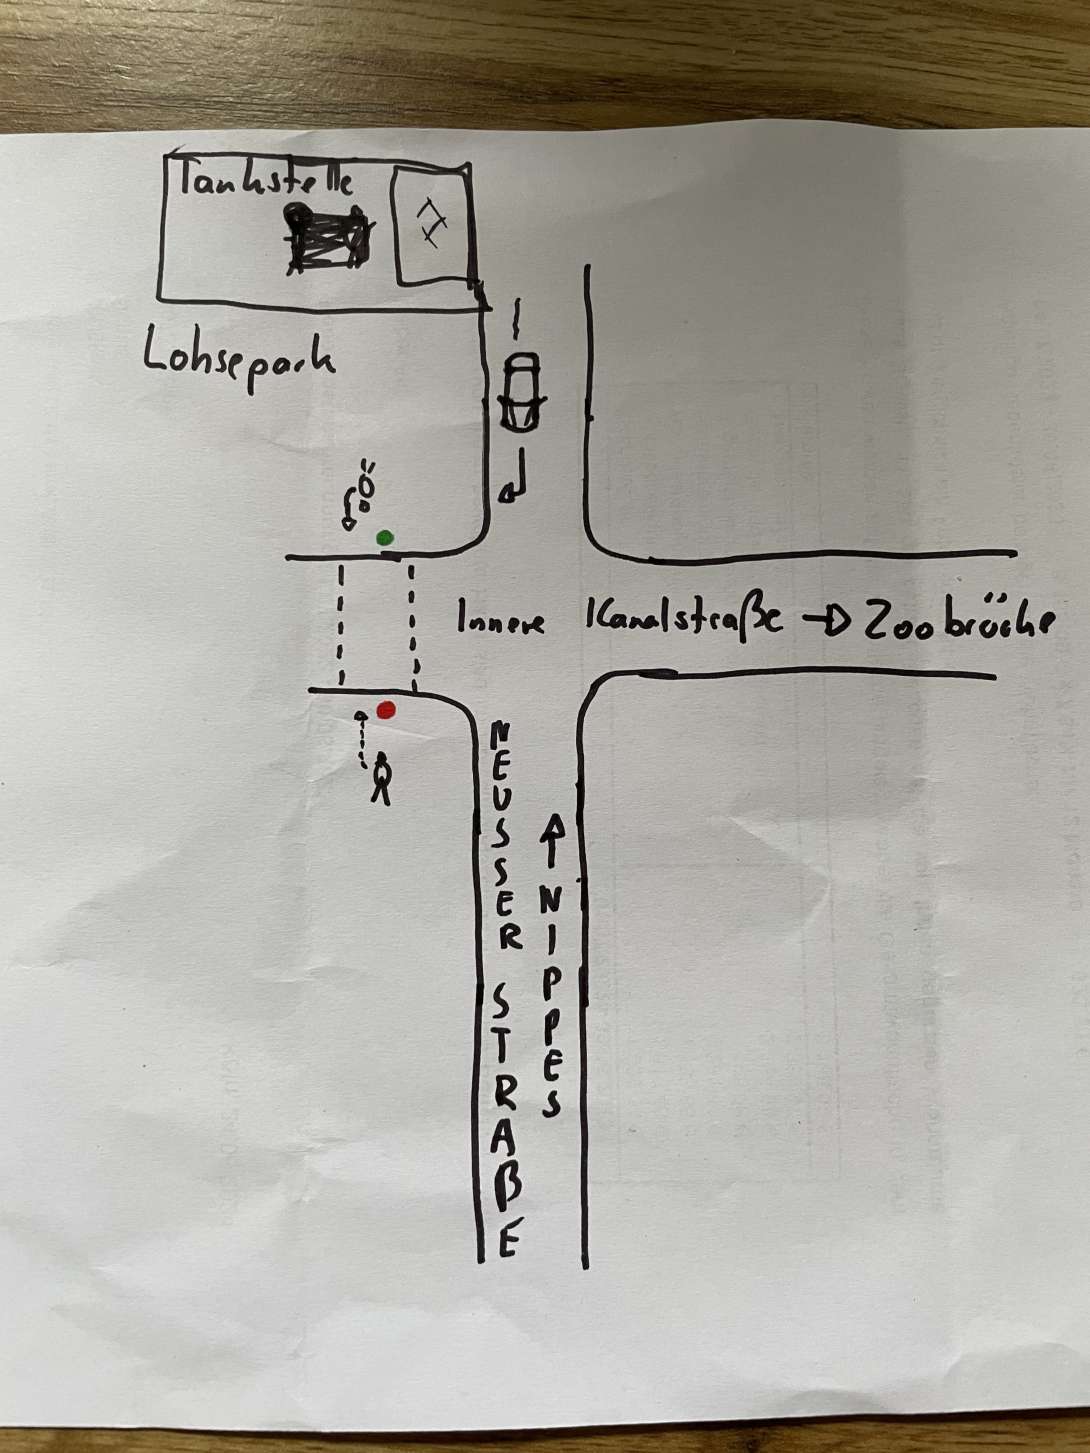 Tankstelle
Lohsepark
Innere Kanalstraße → Zoobrücke
NEUSSER STRAßE
↑ NIPPES